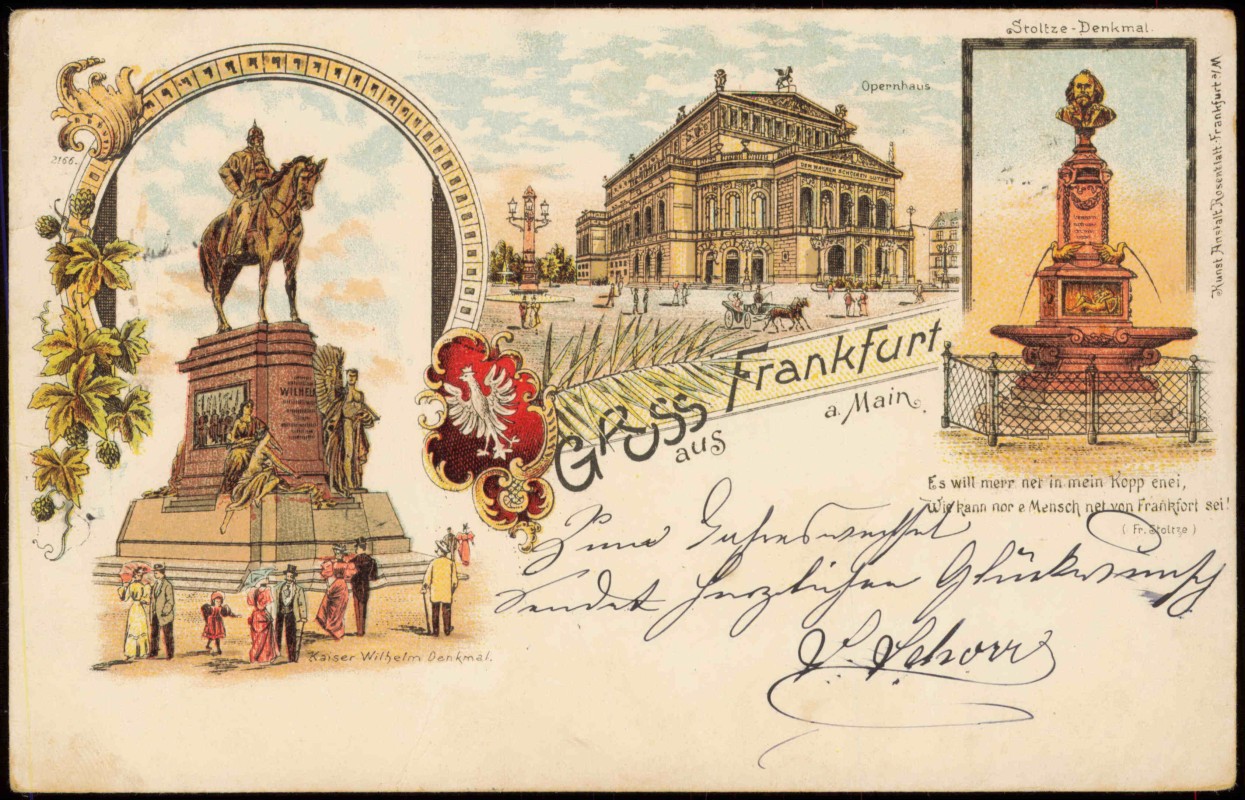 Stoltze-Denkmal.
Opernhaus
2166.
Kunst Anstalt Rosenblatt-Frankfurt a/M
DEM WAHREN SCHOENEN GUTEN
WILHELM
Gruss
aus
Frankfurt
a. Main.
Es will merr net in mein Kopp enei,
Wie kann nor e Mensch net von Frankfort sei!
( Fr. Stoltze )
Zum Jahreswechsel
sendet herzlichen Glückwunsch
Schorr
Kaiser Wilhelm Denkmal.